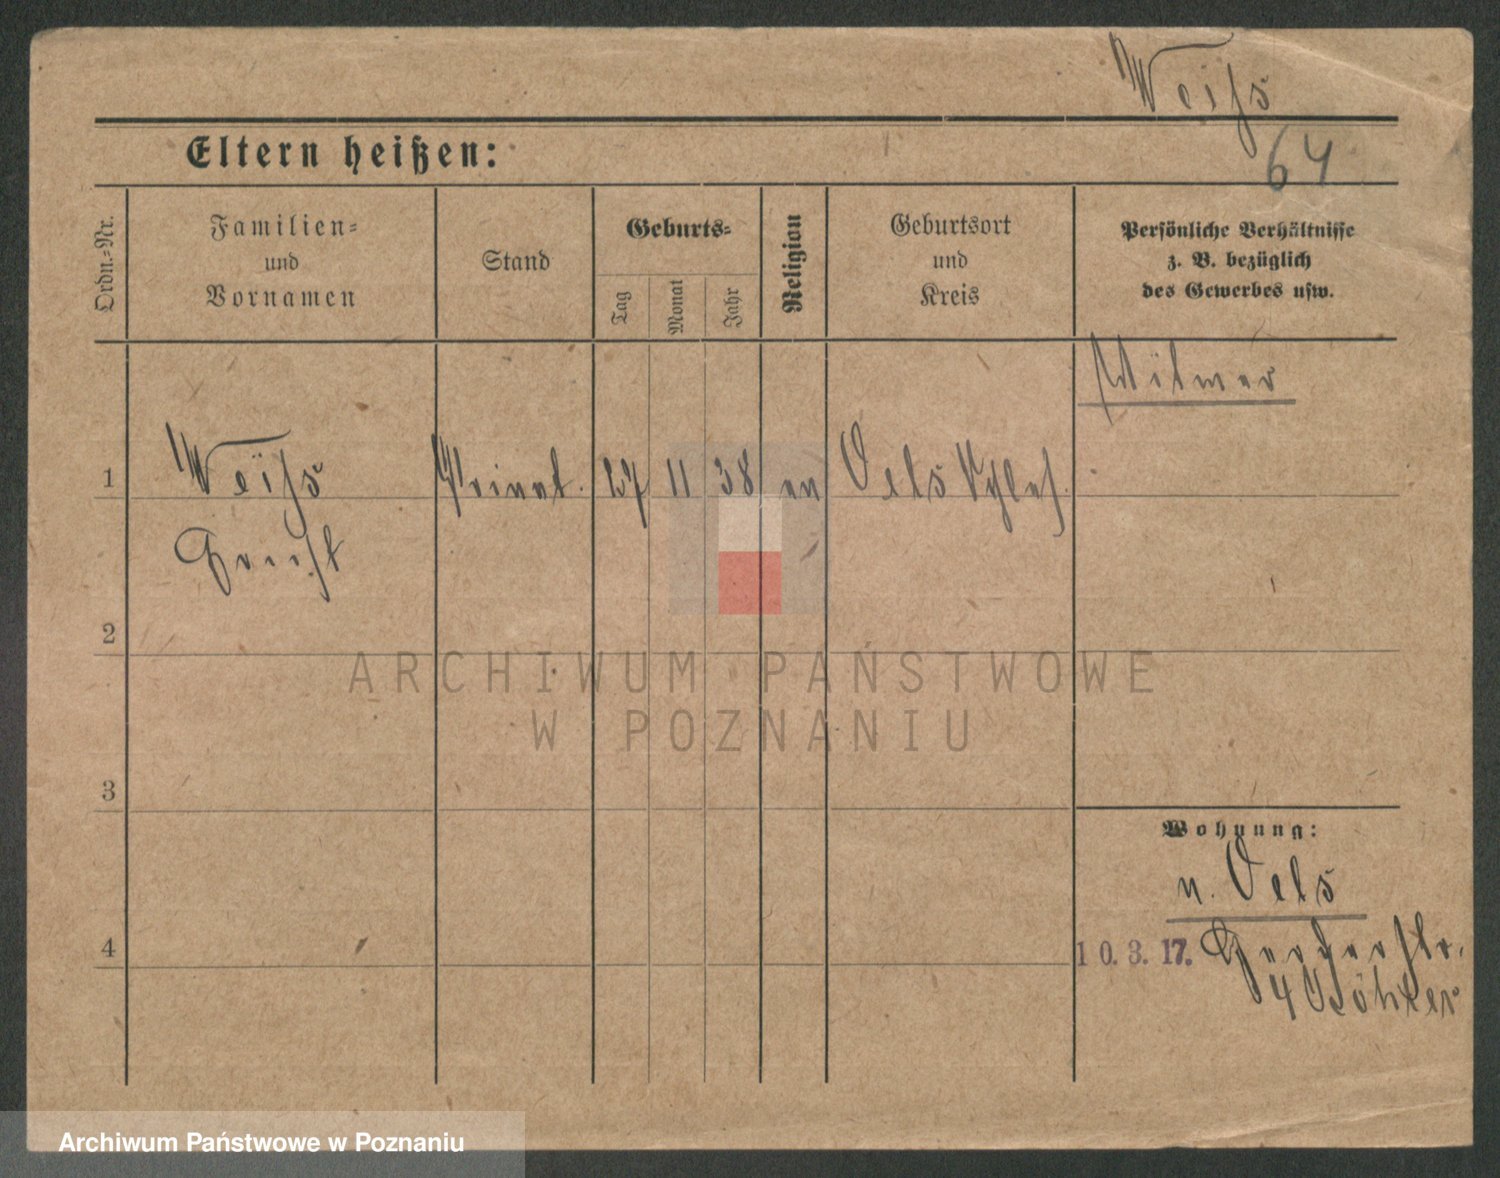 Weiß
64
Eltern heißen:
Ordn.-Nr.
Familien-
und
Vornamen
Stand
Geburts-
Tag
Monat
Jahr
Religion
Geburtsort
und
Kreis
Persönliche Verhältnisse
z. B. bezüglich
des Gewerbes usw.
Witwer
1
Weiß
Privat. 27 11 38 ev Oels Schles.
2
3
4
ARCHIWUM PAŃSTWOWE
W POZNANIU
Wohnung:
n. Oels
10.3.17.
4
Archiwum Państwowe w Poznaniu